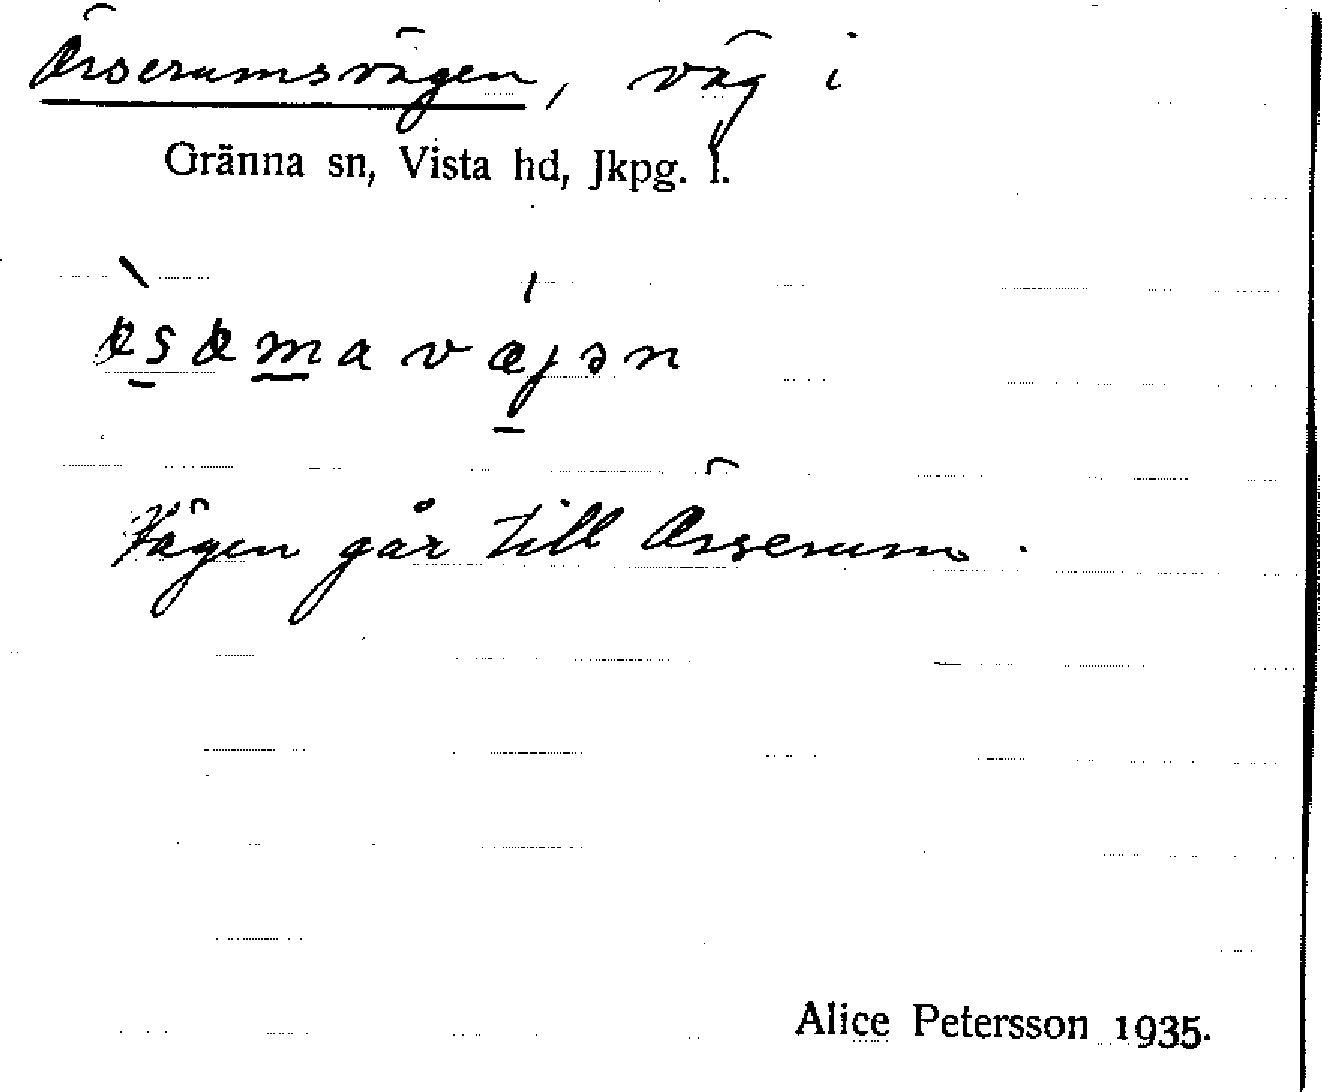 Örserumsvägen, väg i
Gränna sn, Vista hd, Jkpg. l.
Vägen går till Örserum.
Alice Petersson 1935.